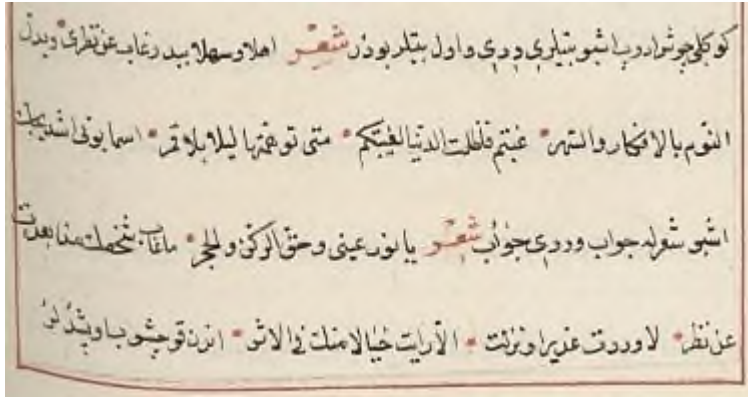 كوكلی جوش ادوب اشبو بیتلری ددی و اول بیتلر بودر شعر اهلا وسهلا ببدر غاب عن نظری وبدل
النوم بالافكار والسهر غبتم فاظلت الدنيا لغيبتكم متى توهمتها ليلا بلا قمر اسما بونی اشدیجك
اشبو شعرله جواب ویردی جواب شعر يا نور عينی وحق الركن والحجر ما غاب شخصك منا بعدت
عن نظر لا وردت غديرا ونزلت الا رايت خيالا منك فی الاثر اندن قوجشوب اوپشدلر